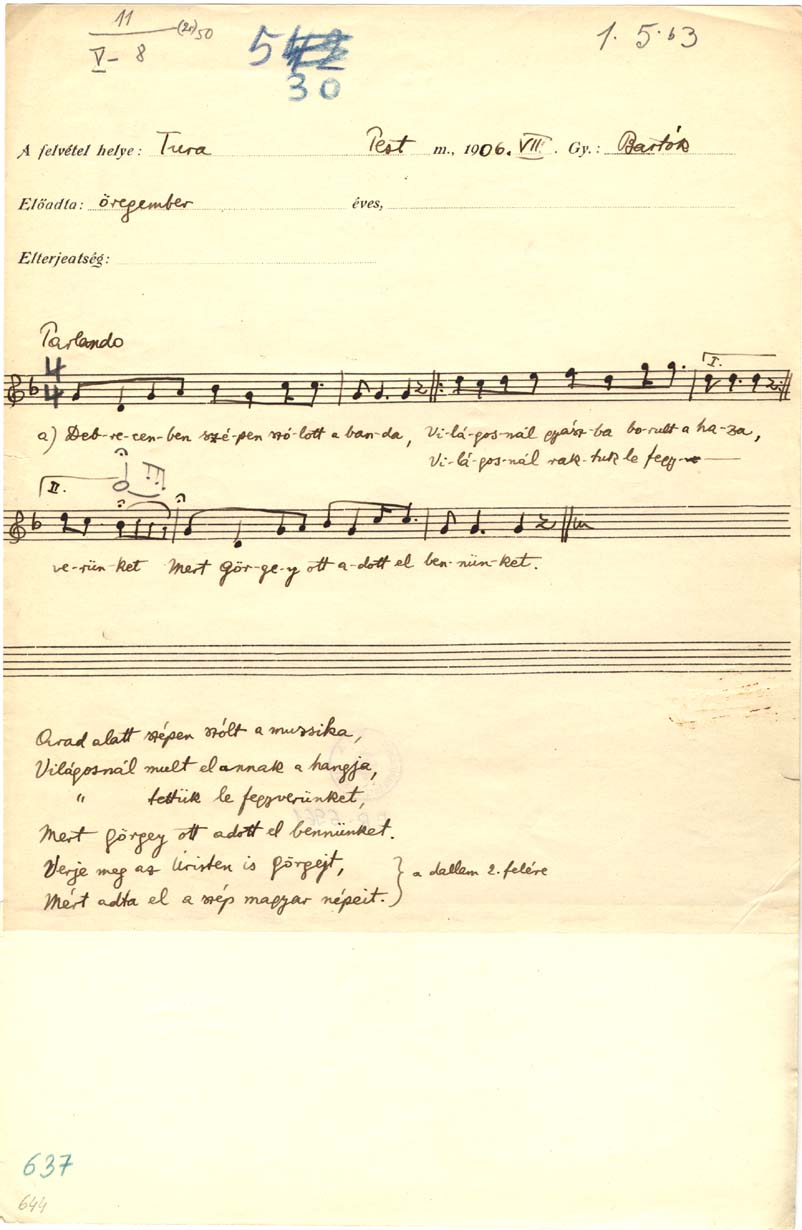 11
V - 8 (21) 50
5
30
1. 5. 63
A felvétel helye: Tura Pest m., 1906. VII. Gy.: Bartók
Előadta: öregember éves,
Elterjeatség:
Parlando
4
4
I.
a) Deb-re-cen-ben szé-pen szó-lott a ban-da, Vi-lá-gos-nál gyász-ba bo-rult a ha-za,
Vi-lá-gos-nál rak-tuk le fegy-
II.
ve-rün-ket Mert Gör-ge-y ott a-dott el ben-nün-ket.
Arad alatt szépen szólt a muzsika,
Világosnál mult el annak a hangja,
" tettük le fegyverünket,
Mert Görgey ott adott el bennünket.
Verje meg az Úristen is Görgejt,
Mért adta el a szép magyar népeit. } a dallam 2. felére
637
644